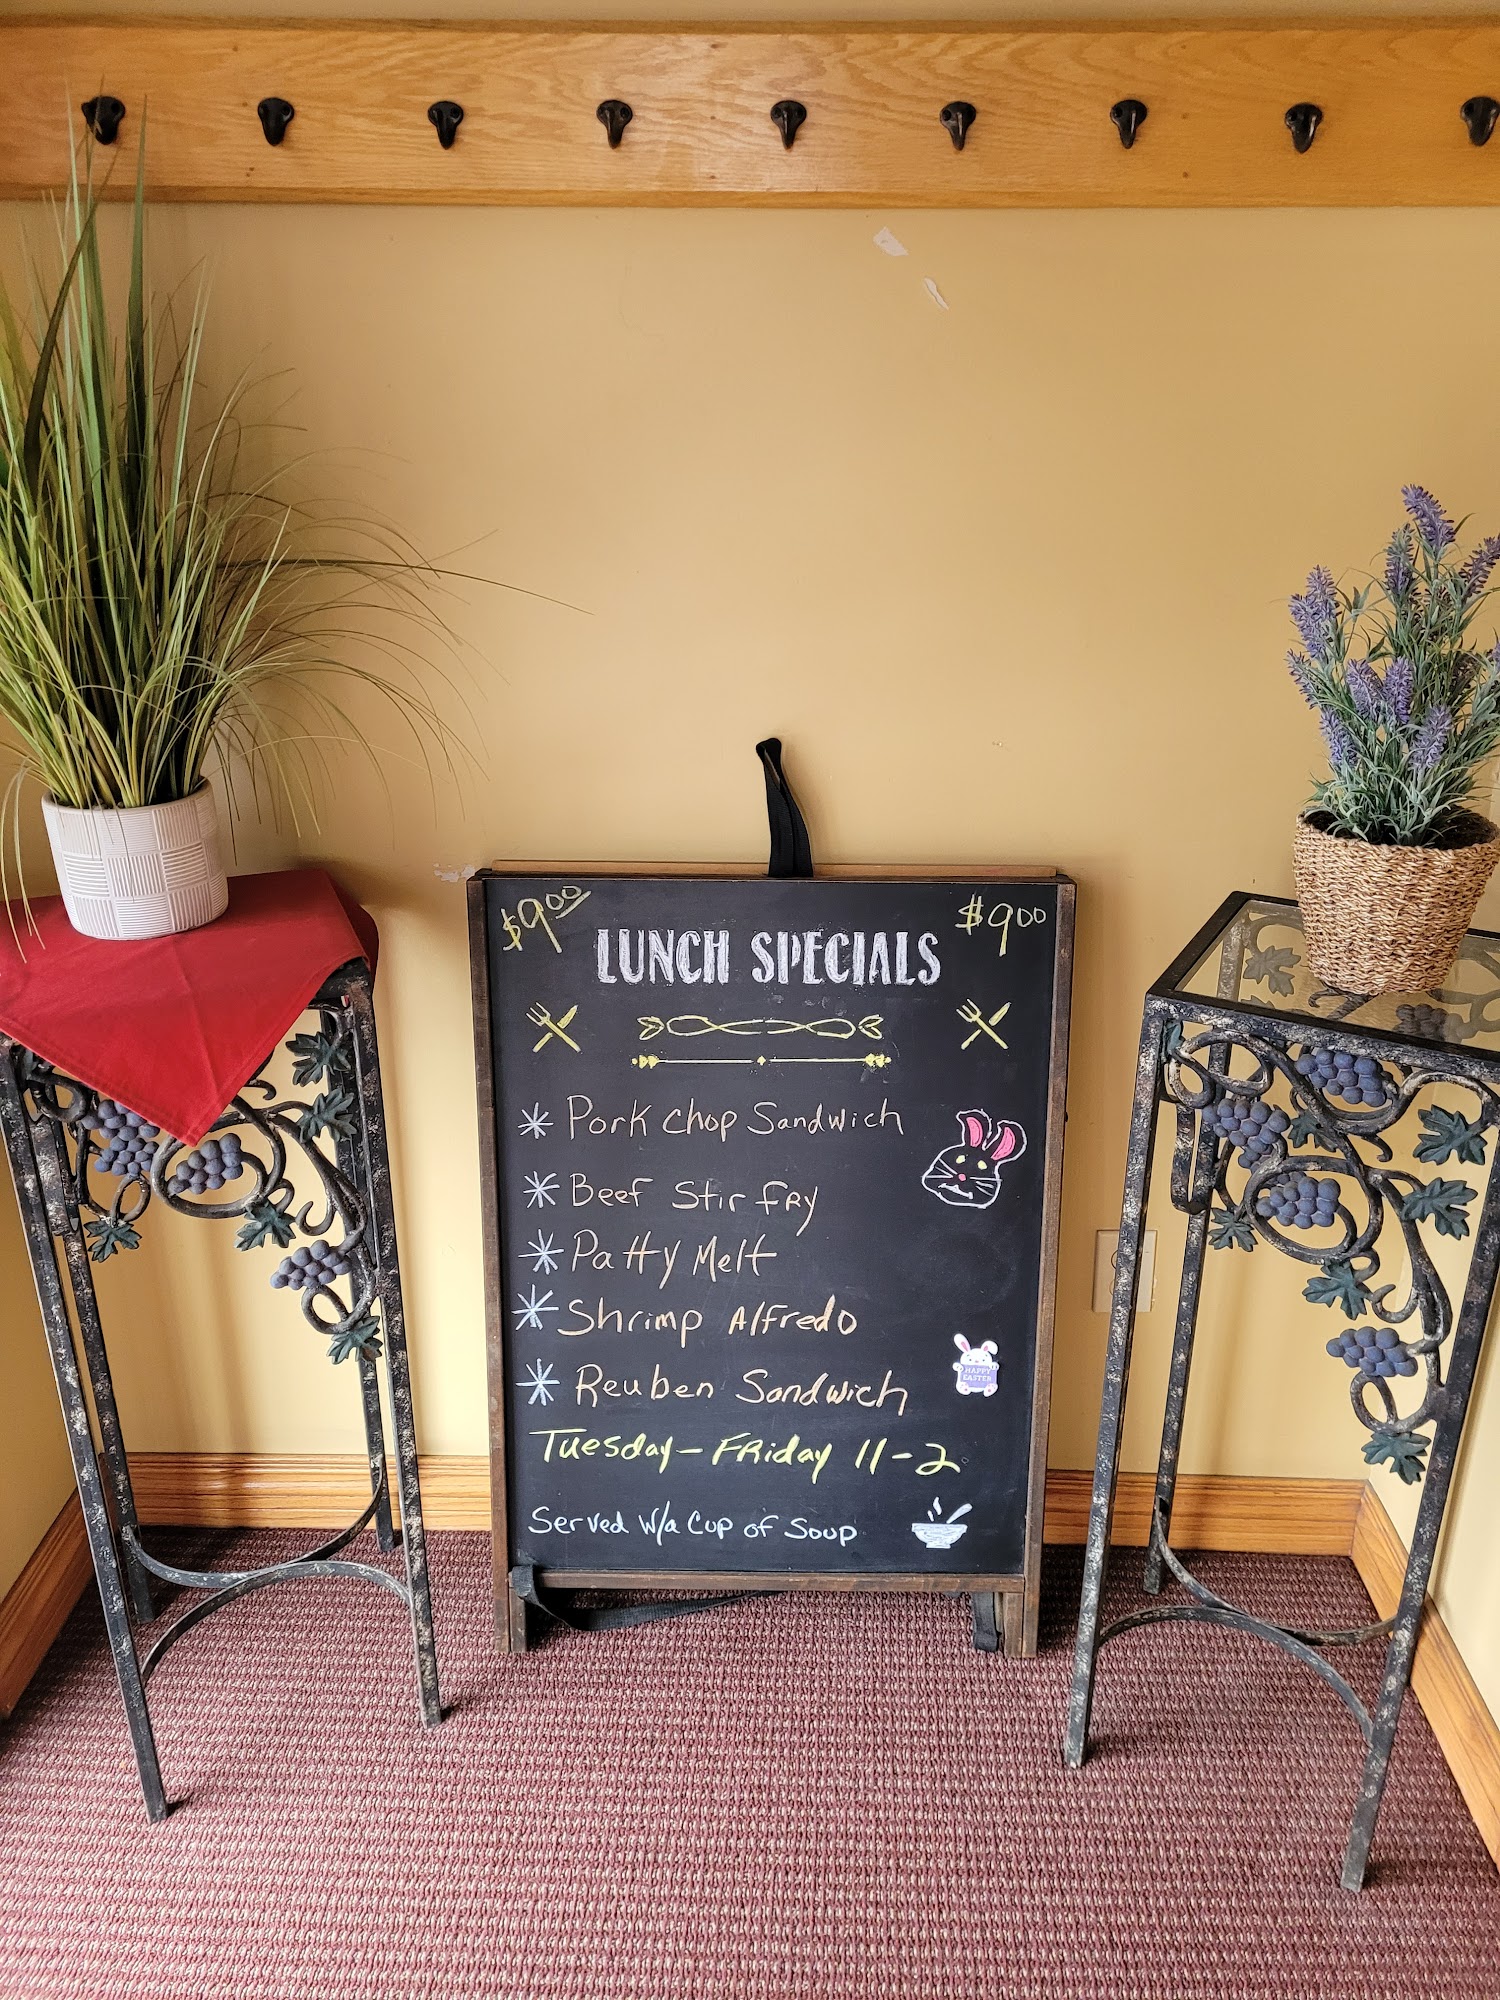 $9.00 $9.00
LUNCH SPECIALS
* Pork Chop Sandwich
* Beef Stir Fry
* Patty Melt
* Shrimp Alfredo
HAPPY
EASTER
* Reuben Sandwich
Tuesday - Friday 11-2
Served w/a Cup of Soup